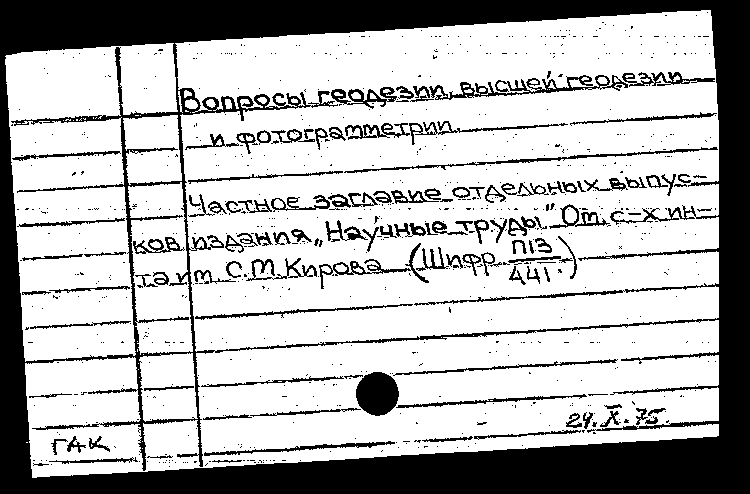 Вопросы геодезии, высшей геодезии
и фотограмметрии.
Частное заглавие отдельных выпус-
ков издания „Научные труды" От. с-х ин-
та им С.М. Кирова (Шифр П13/441.)
29.X.75.
ГАК